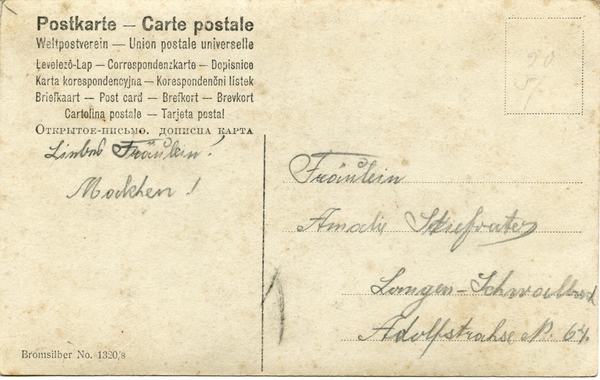 Postkarte — Carte postale
Weltpostverein — Union postale universelle
Levelező-Lap — Correspondenzkarte — Dopisnice
Karta korespondencyjna — Korespondenčni listek
Briefkaart — Post card — Brefkort — Brevkort
Cartolina postale — Tarjeta postal
Открытое-письмо. дописна карта
Fräulein!
Fräulein
Langen-Schwalbach
Adolfstrahse N. 64.
Bromsilber No. 1320/8